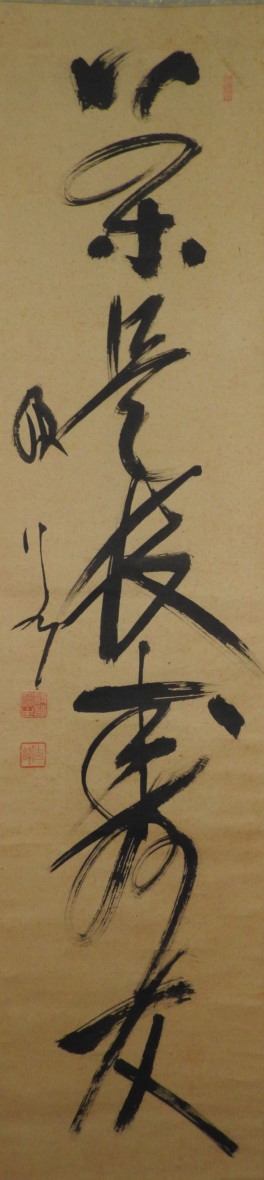 茶是長寿友